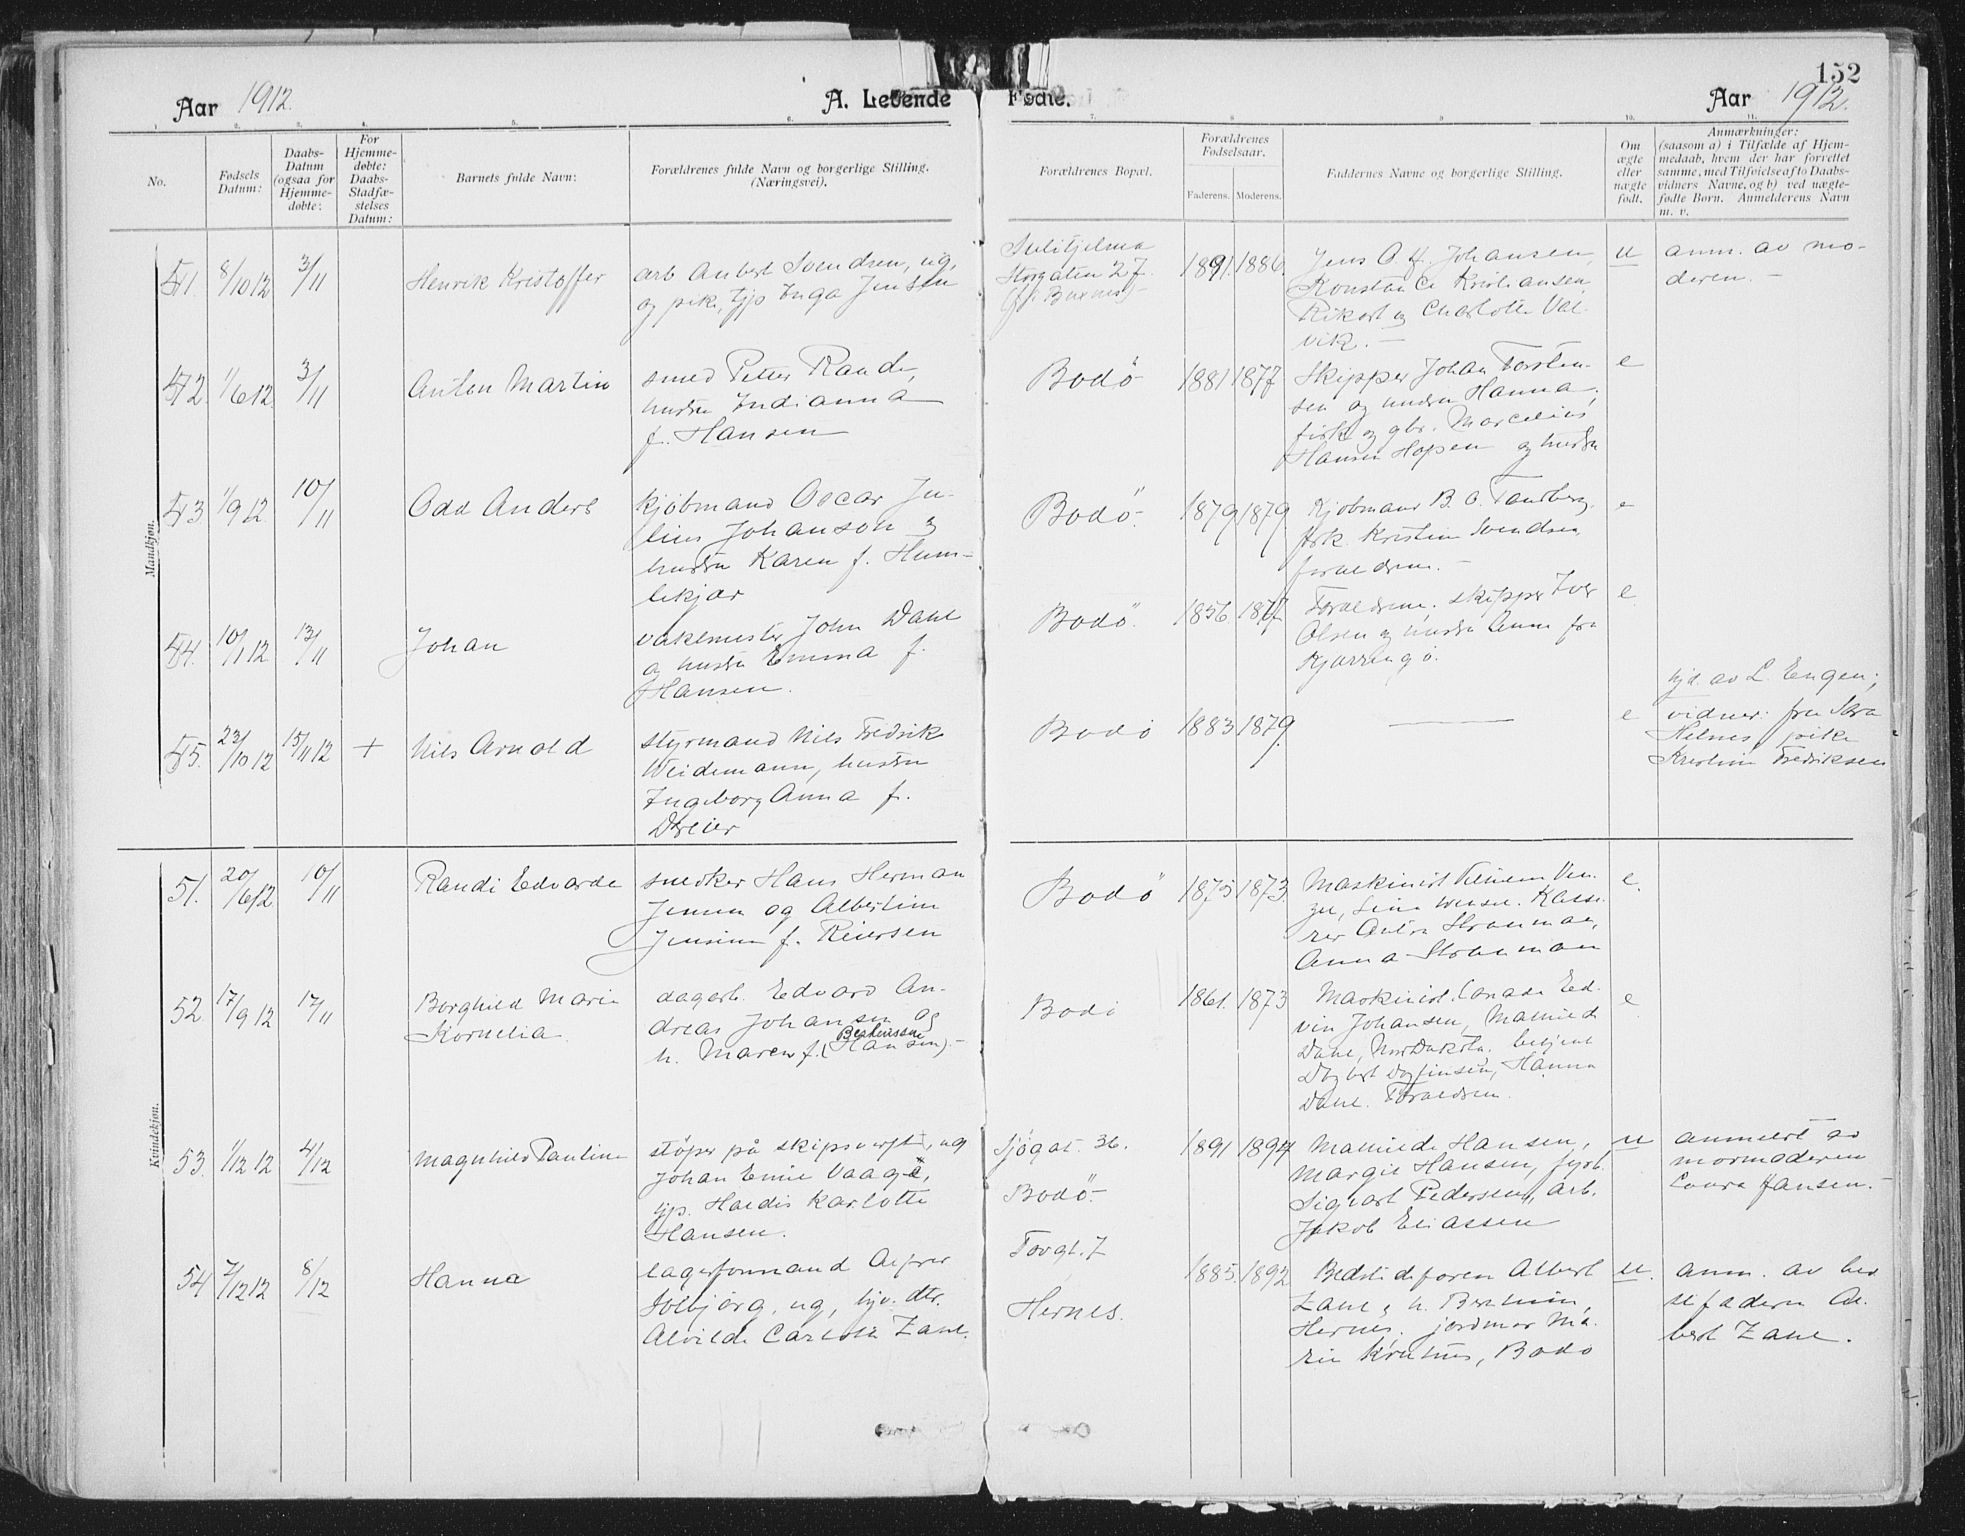 152
Aar 1912.
A. Levende
Fødte.
Aar 1912.
1. 2. 3. 4. 5. 6. 7. 8 9 10. 11.
No.
Fødsels Datum:
Daabs-
Datum
(ogsaa for
Hjemme-
døbte:
For
Hjemme-
døbte:
Daabs-
Stadfæ-
stelses
Datum:
Barnets fulde Navn:
Forældrenes fulde Navn og borgerlige Stilling.
(Næringsvei).
Forældrenes Bopæl.
Forældrenes
Fødselsaar.
Faderens. Moderens.
Faddernes Navne og borgerlige Stilling.
Om
ægte
eller
uægte
født.
Anmærkninger:
(saasom a) i Tilfælde af Hjem-
medaab, hvem der har forrettet
samme, med Tilføielse af to Daabs-
vidners Navne, og b) ved uægte-
fødte Børn. Anmelderens Navn
m. v.
Mandkjøn.
41. 8/10 12 3/11 Henrik Kristoffer
arb Anbert Svendsen, ug,
og pike, tjp Inga Jensen
Sulitjelma
Storgaten 27.
1891. 1886.
Jens O. Johansen,
Konstance Kristiansen
Rikart og Charlotte Val-
vik. —
u
anm. av mo-
deren. —
42. 1/6 12. 3/11 Anton Martin
smed Petter Rande,
hustru Indianna
f. Hansen
Bodö
1881 1877
Skipper Johan Torsten-
sen og hustru Hanna,
fisk og gbr. Marcelius
Hansen Hopen og hustru
e
43 1/9 12. 10/11 Odd Anders
kjöbmand Oscar Ju-
lius Johanson og
hustru Karen f. Hum-
lekjær
Bodö.
1879 1879
Kjöbmand B. O. Tandberg,
frk. Kristine Svendsen,
foraeldrene. —
e
44. 10/1 12 13/11 Johan
vaktmester John Dahl
og hustru Emma f.
Hansen.
Bodö.
1856. 1877
Foraeldrene. skipper Iver
Olsen og hustru Anna fra
Kjærringö.
e
45. 23/10 12 15/11 12 + Nils Arnold
styrmand Nils Fredrik
Weidemann, hustru
Ingeborg Anna f.
Dreier
Bodö
1883 1879.
—
e
hjd. av L. Engen;
vidner: fru Sara
Helnes, pike
Kristine Fredriksen
Kvindekjøn.
51. 20/6 12 10/11 Randi Edvarde
snedker Hans Herman
Jensen og Albertine
Jensine f. Reiersen
Bodö
1875 1873.
Maskinist
Anna Stranman
e.
52. 17/9 12 17/11 Borghild Marie
Kornelia
dagarb. Edvard An-
dreas Johansen og
Berntussen
h. Maren f. (Hansen). —
Bodö
1861. 1873
Maskinist. Ed-
vin Johansen, Mathilde
Dahl, betjent
Dagfinsen, Hanna
Dahl. Foraeldrene.
e
53. 1/12 12 4/12 Magnhild Pauline
stöper på skipsverft, ug
Johan Emil Vaage,
tjp. Haldis Karlotte
Hansen.
Sjögat. 36.
Bodö. —
1891 1894
Mathilde Hansen,
Margit Hansen, fyrb.
Sigvart Pedersen, arb.
Jakob Eliassen
u
anmeldt av
mormoderen
Laura Jansen. —
54 7/12 12 8/12 Hanna
lagerformand Alfred
Solbjörg, ug, hjv. dtr.
Alvilde Carlotte Zahl.
Torvgt. 7
Hernes.
1885. 1892
Bedstefaren Albert
Zahl, h. Berntine,
Hernes, jordmor Ma-
rie Knutnes, Bodö
u.
anm. av bed
stefaderen Al-
bert Zahl.